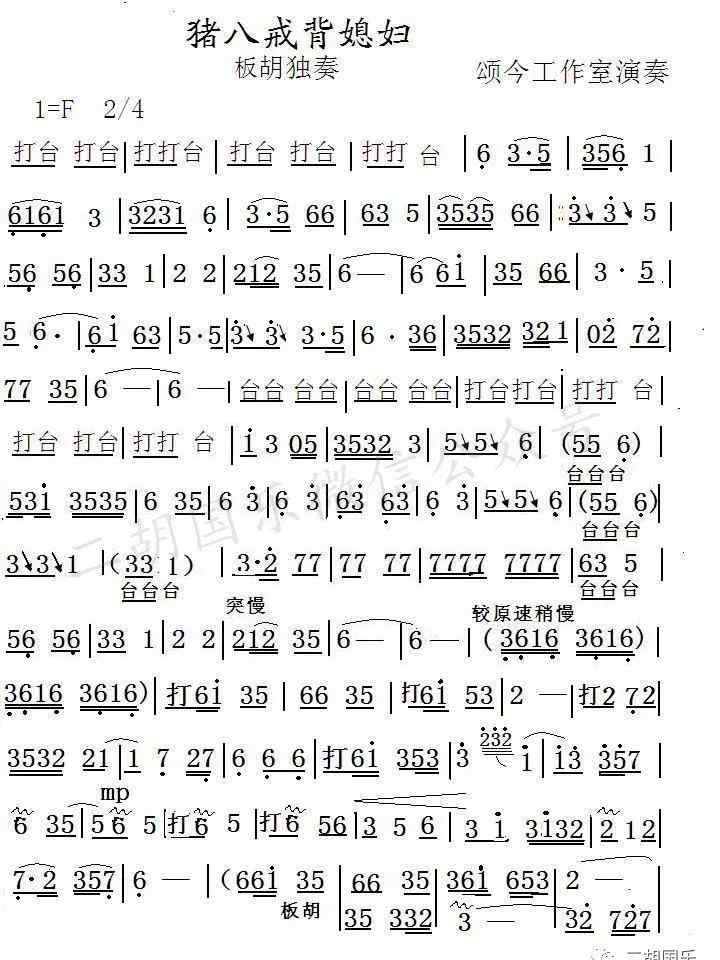 猪八戒背媳妇
板胡独奏
颂今工作室演奏
1=F 2/4
打台 打台|打打台|打台 打台|打打 台|6 3·5|356 1|
6161 3|3231 6|3·5 66|63 5|3535 66|3 3 5|
56 56|33 1|2 2|212 35|6—|6 61|35 66|3·5|
5 6·|61 63|5·5|3 3|3·5|6·36|3532 321|02 72|
77 35|6—|6—|台台|台台|台台 台台|打台打台|打打 台|
打台 打台|打打 台|1 3 05|3532 3|5 5 6|(55 6)|
台台台
531 3535|6 35|6 3|6 3|63 63|6 3|5 5 6|(55 6)|
台台台
3 3 1|(33 1)|3·2 77|77 77|7777 7777|63 5|
台台台 台台台
突慢 较原速稍慢
56 56|33 1|2 2|212 35|6—|6—|(3616 3616)|
3616 3616)|打61 35|66 35|打61 53|2—|打2 72|
3532 21|1 7 27|6 6 6|打61 353|3 232 1|13 357|
mp
6 35|5 6 5|打6 5|打6 56|3 5 6|3 1|3132|6 2 12|
7·2 357|6—|(661 35|66 35|361 653|2—|
板胡 35 332|3—|32 727|
二胡国乐微信公众号
二胡国乐